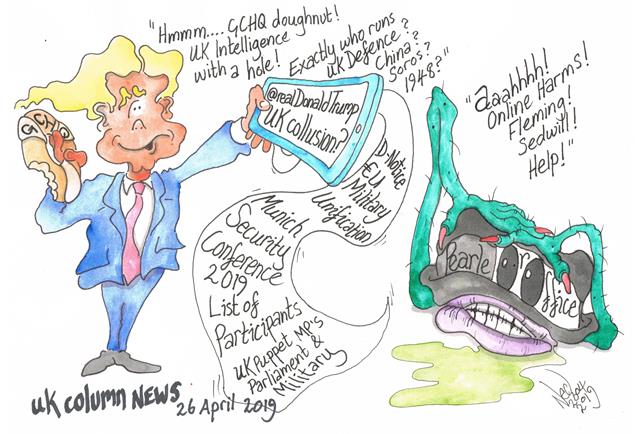 "Hmmm.... GCHQ doughnut!
UK Intelligence
with a hole!
Exactly who runs
UK Defence?
China?
Soros?
1948?"
GCHQ
@realDonaldTrump
UK collusion?
D-Notice
EU
Military
Unification
Munich
Security
Conference
2019
List of
Participants
UK Puppet MP's
Parliament &
Military
"aaaahhhh!
Online Harms!
Fleming!
Sedwill!
Help!"
Pearle or
ffice
UK COLUMN NEWS
26 April 2019
2019